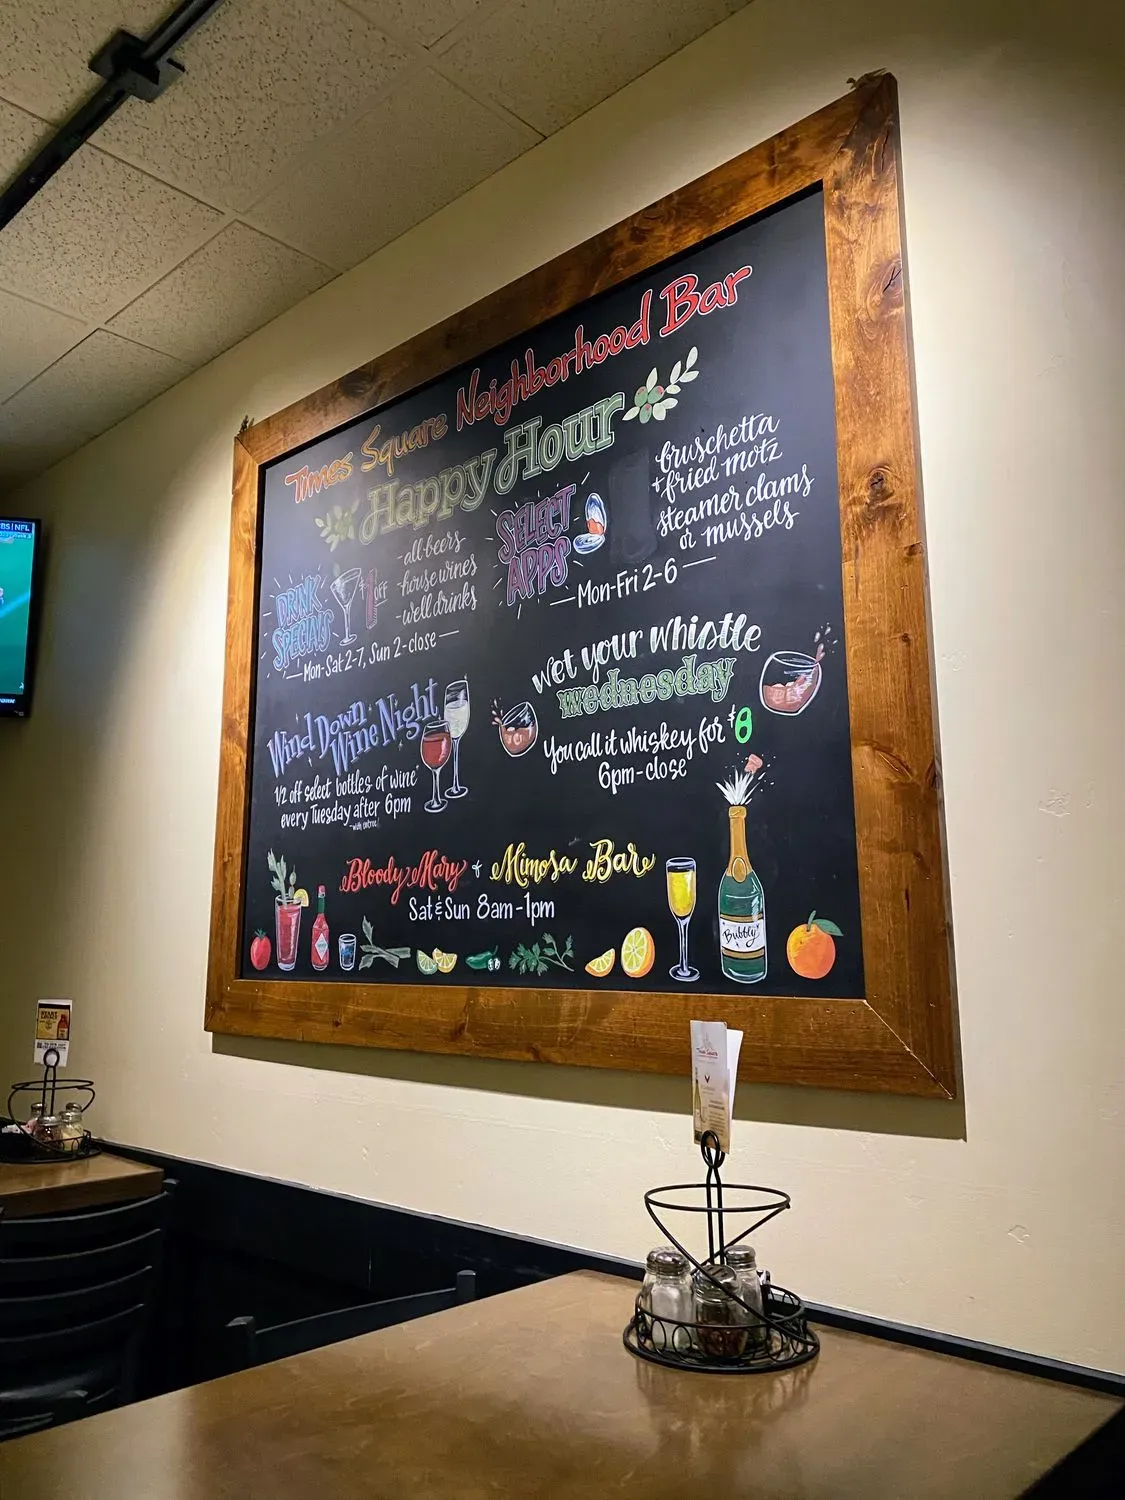 Times Square Neighborhood Bar
Happy Hour
DRINK
SPECIALS
$1 OFF
-all beers
-house wines
-well drinks
Mon-Sat 2-7, Sun 2-close
SELECT
APPS
bruschetta
+ fried motz
steamer clams
or mussels
Mon-Fri 2-6
Wind Down
Wine Night
1/2 off select bottles of wine*
every Tuesday after 6pm
-with entree
wet your whistle
wednesday
You call it whiskey for $8
6pm-close
Bloody Mary + Mimosa Bar
Sat & Sun 8am-1pm
Bubbly
NFL